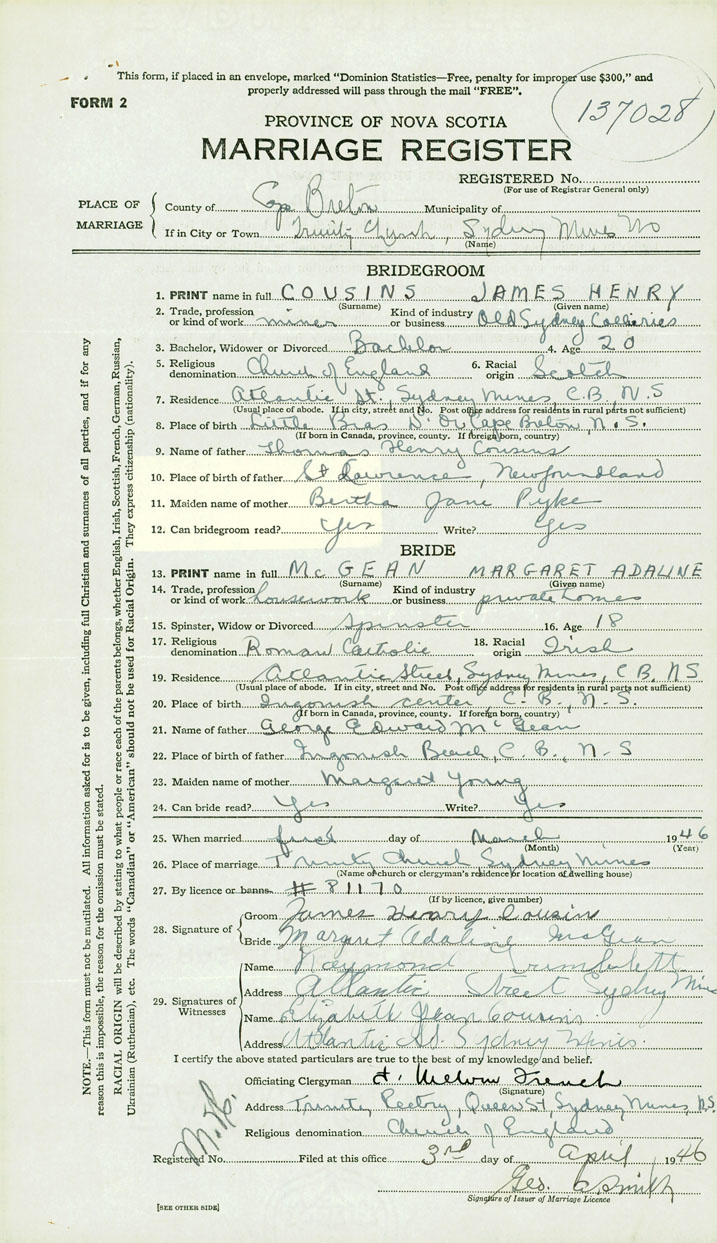 This form, if placed in an envelope, marked "Dominion Statistics—Free, penalty for improper use $300," and
properly addressed will pass through the mail "FREE".
137028
FORM 2
PROVINCE OF NOVA SCOTIA
MARRIAGE REGISTER
REGISTERED No.
(For use of Registrar General only)
PLACE OF MARRIAGE
County of Cape Breton Municipality of
If in City or Town Trinity Church, Sydney Mines
(Name)
BRIDEGROOM
1. PRINT name in full COUSINS JAMES HENRY
(Surname) (Given name)
2. Trade, profession or kind of work miner Kind of industry or business Old Sydney Collieries
3. Bachelor, Widower or Divorced Bachelor 4. Age 20
5. Religious denomination Church of England 6. Racial origin Scotch
7. Residence Atlantic St., Sydney Mines, C.B., N.S
(Usual place of abode. If in city, street and No. Post office address for residents in rural parts not sufficient)
8. Place of birth Little Bras D'Or Cape Breton, N.S.
(If born in Canada, province, county. If foreign born, country)
9. Name of father Thomas Henry Cousins
10. Place of birth of father St Lawrence, Newfoundland
11. Maiden name of mother Bertha Jane Pyke
12. Can bridegroom read? Yes Write? Yes
BRIDE
13. PRINT name in full McGEAN MARGARET ADALINE
(Surname) (Given name)
14. Trade, profession or kind of work housework Kind of industry or business private homes
15. Spinster, Widow or Divorced Spinster 16. Age 18
17. Religious denomination Roman Catholic 18. Racial origin Irish
19. Residence Atlantic Street, Sydney Mines, C B. NS
(Usual place of abode. If in city, street and No. Post office address for residents in rural parts not sufficient)
20. Place of birth Ingonish center, C. B., N.S.
(If born in Canada, province, county. If foreign born, country)
21. Name of father George Edward McGean
22. Place of birth of father Ingonish Beach, C.B., N-S
23. Maiden name of mother Margaret Young
24. Can bride read? Yes Write? Yes
25. When married first day of March 1946
(Month) (Year)
26. Place of marriage Trinity Church Sydney Mines
(Name of church or clergyman's residence or location of dwelling house)
27. By licence or banns # 81170
(If by licence, give number)
28. Signature of
Groom James Henry Cousin
Bride Margaret Adaline McGean
29. Signatures of Witnesses
Name Raymond
Address Atlantic Street Sydney Mines
Name Elizabeth Jean Cousins
Address Atlantic St. Sydney Mines.
I certify the above stated particulars are true to the best of my knowledge and belief.
Officiating Clergyman A. Melvin French
(Signature)
Address Trinity Rectory, Queen St, Sydney Mines, N.S
Religious denomination Church of England
Registered No. Filed at this office 3rd day of April 1946
Geo. A Smith
Signature of Issuer of Marriage Licence
[SEE OTHER SIDE]
NOTE.—This form must not be mutilated. All information asked for is to be given, including full Christian and surnames of all parties, and if for any
reason this is impossible, the reason for the omission must be stated.
RACIAL ORIGIN will be described by stating to what people or race each of the parents belongs, whether English, Irish, Scottish, French, German, Russian,
Ukrainian (Ruthenian), etc. The words "Canadian" or "American" should not be used for Racial Origin. They express citizenship (nationality).